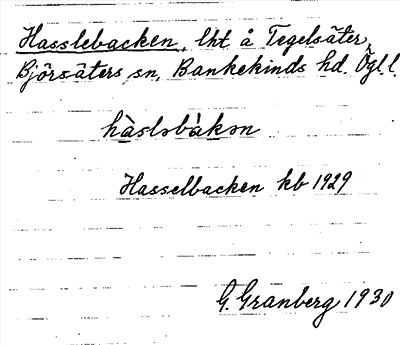 Hasslebacken, lht å Tegelsäter,
Björsäters sn, Bankekinds hd. Ögl.l.
hàsləbàkən
Hasselbacken kb 1929
G. Granberg 1930